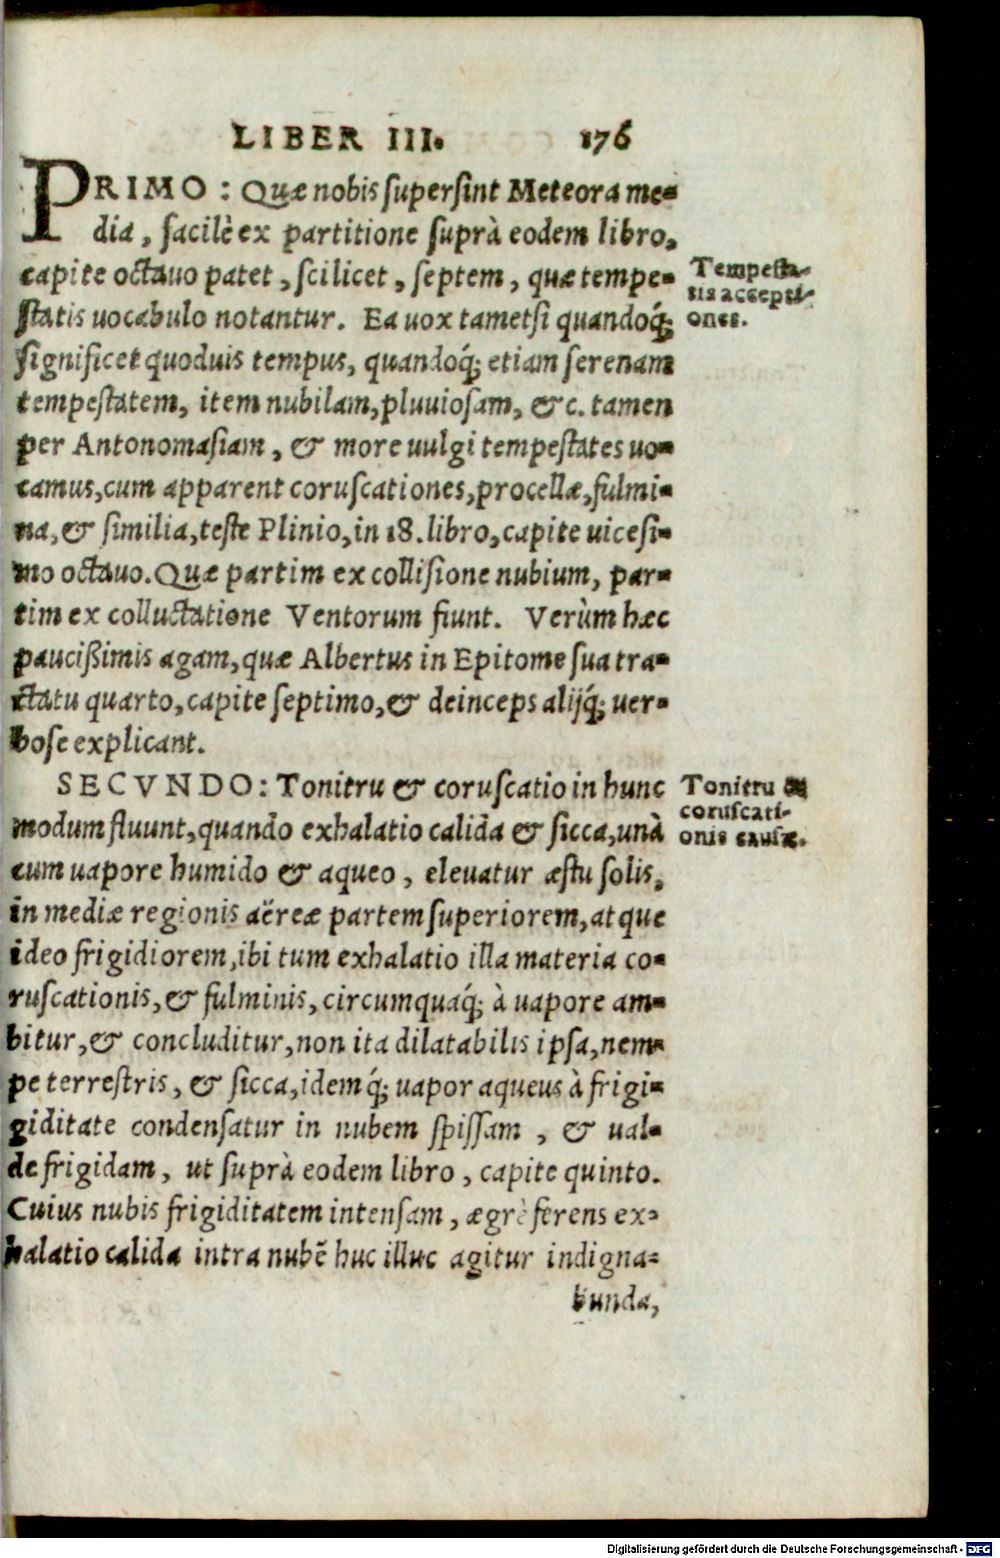 LIBER III. 176
PRIMO: Quæ nobis supersint Meteora me-
dia, facilè ex partitione suprà eodem libro,
capite octauo patet, scilicet, septem, quæ tempe-
statis uocabulo notantur. Ea uox tametsi quandoq́;
significet quoduis tempus, quandoq́; etiam serenam
tempestatem, item nubilam, pluuiosam, &c. tamen
per Antonomasiam, & more uulgi tempestates uo-
camus, cum apparent coruscationes, procellæ, fulmi-
na, & similia, teste Plinio, in 18. libro, capite uicesi-
mo octauo. Quæ partim ex collisione nubium, par-
tim ex colluctatione Ventorum fiunt. Verùm hæc
paucißimis agam, quæ Albertus in Epitome sua tra-
ctatu quarto, capite septimo, & deinceps alijq́; uer-
bose explicant.
Tempesta-
tis accepti-
ones.
SECVNDO: Tonitru & coruscatio in hunc
modum fluunt, quando exhalatio calida & sicca, unà
cum uapore humido & aqueo, eleuatur æstu solis,
in mediæ regionis aëreæ partem superiorem, atque
ideo frigidiorem, ibi tum exhalatio illa materia co-
ruscationis, & fulminis, circumquaq́; à uapore am-
bitur, & concluditur, non ita dilatabilis ipsa, nem-
pe terrestris, & sicca, idemq́; uapor aqueus à frigi-
giditate condensatur in nubem spissam, & ual-
de frigidam, ut suprà eodem libro, capite quinto.
Cuius nubis frigiditatem intensam, ægrè ferens ex-
halatio calida intra nubẽ huc illuc agitur indigna-
bunda,
Tonitru &
coruscati-
onis causæ.
Digitalisierung gefördert durch die Deutsche Forschungsgemeinschaft - DFG